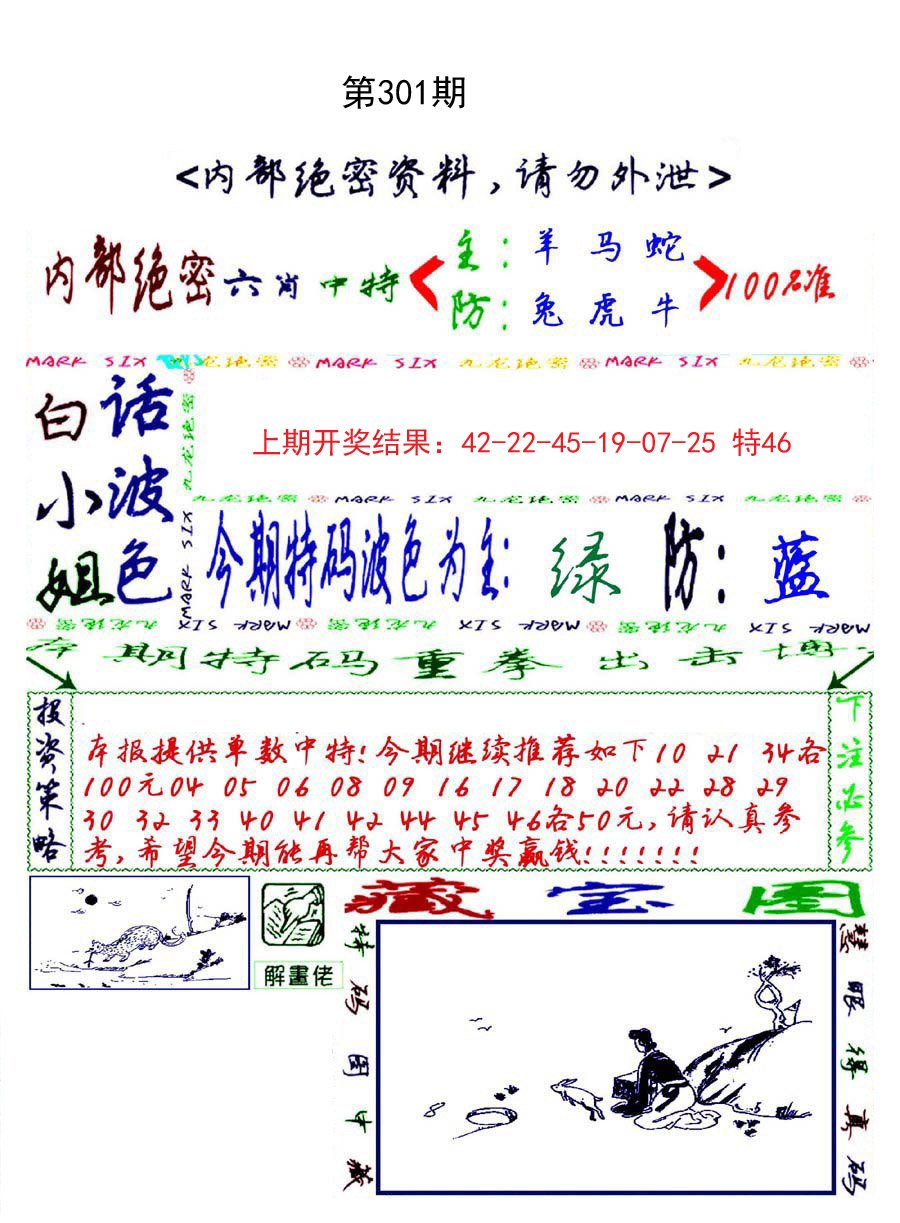 第301期
<内部绝密资料，请勿外泄>
内部绝密六肖中特
主：羊 马 蛇
防：兔 虎 牛
100%准
MARK SIX 九龙绝密 MARK SIX 九龙绝密 MARK SIX 九龙绝密
白话
小波
姐色
九龙绝密
MARK SIX
上期开奖结果：42-22-45-19-07-25 特46
九龙绝密 MARK SIX 九龙绝密 MARK SIX 九龙绝密
今期特码波色为主：绿 防：蓝
九龙绝密 MARK SIX 九龙绝密 MARK SIX 九龙绝密 MARK SIX
本期特码重拳出击博
投资策略
本报提供单数中特！今期继续推荐如下10 21 34各
100元04 05 06 08 09 16 17 18 20 22 28 29
30 32 33 40 41 42 44 45 46各50元，请认真参
考，希望今期能再帮大家中奖赢钱！！！！！！！
下注必参
解畫佬
藏宝图
特码图中藏
慧眼得真码